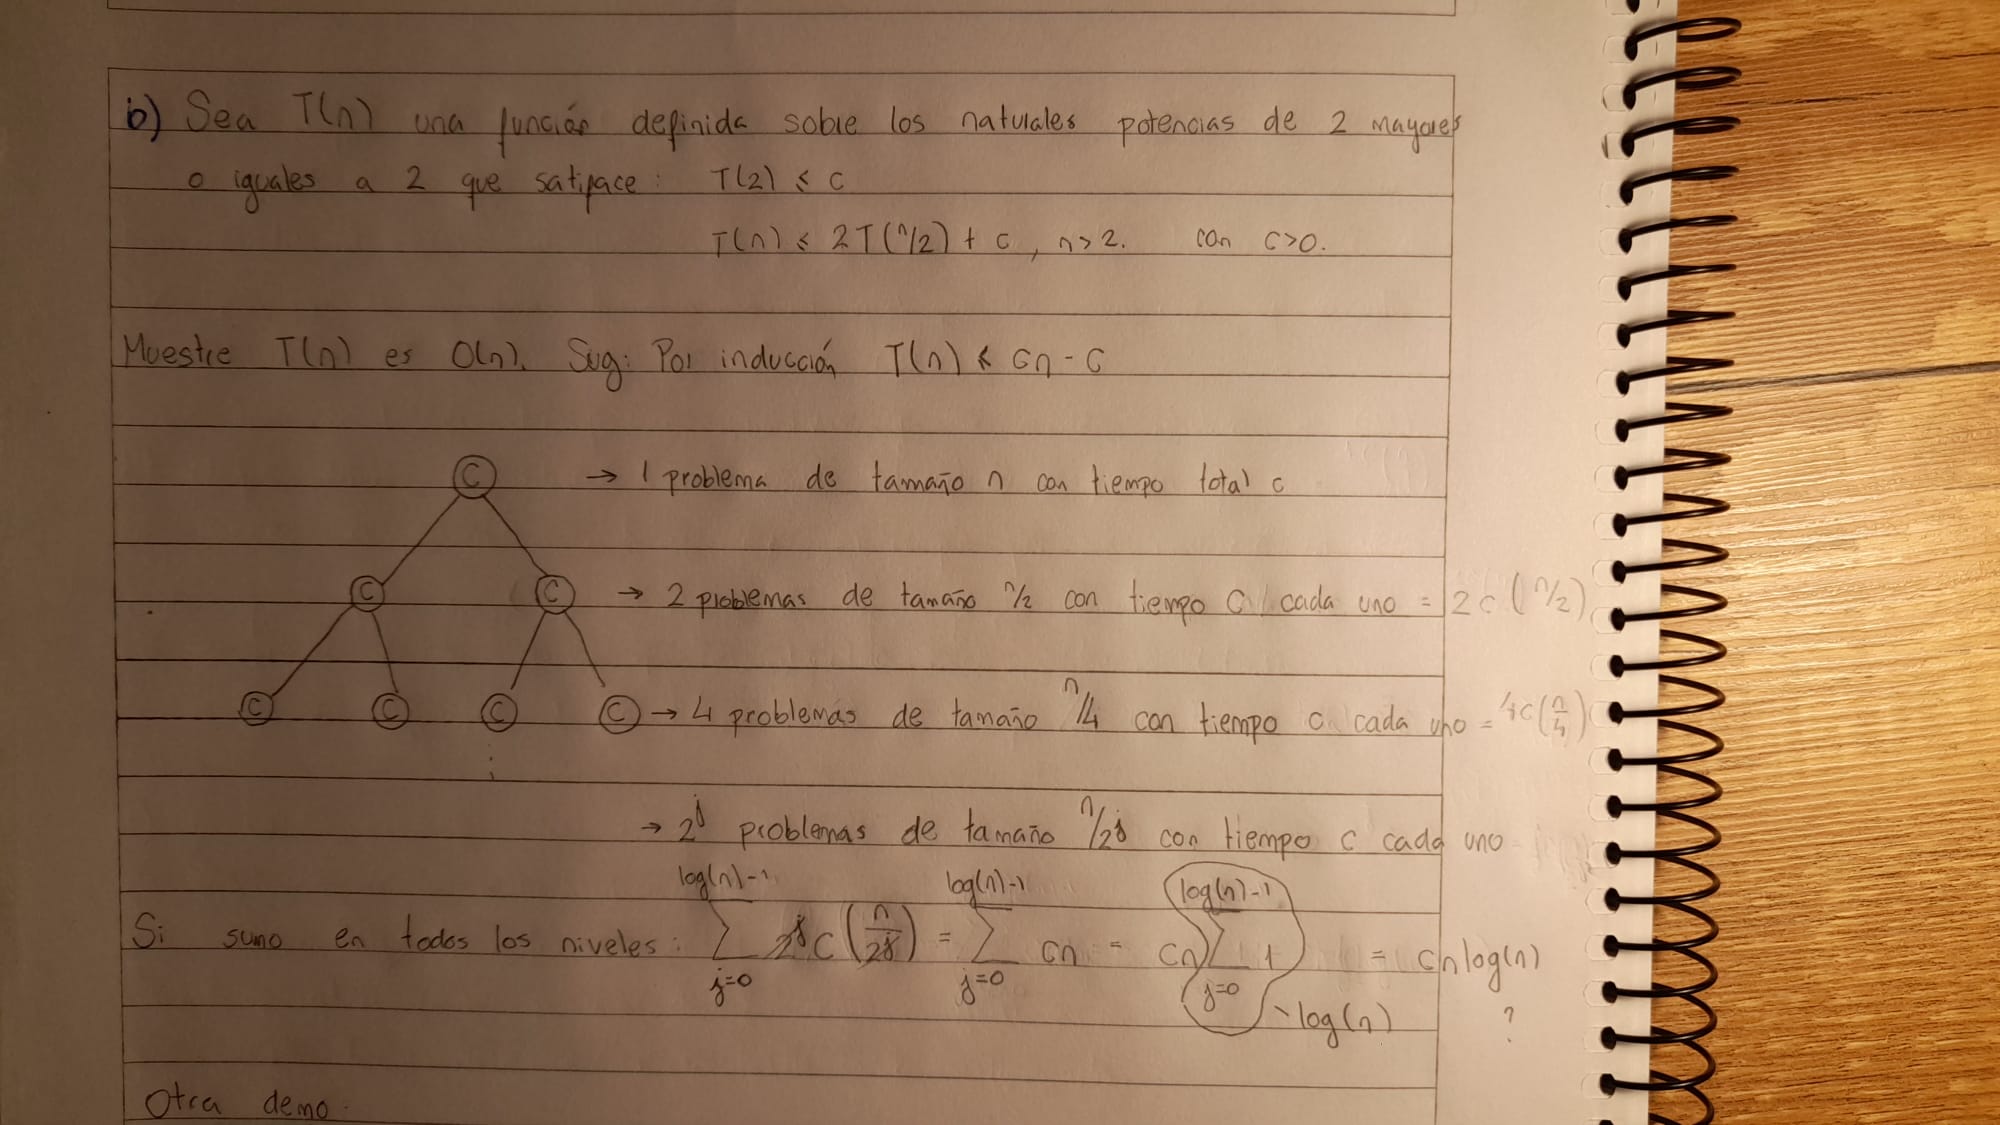 b) Sea T(n) una función definida sobre los naturales potencias de 2 mayores
o iguales a 2 que satiface: T(2) ≤ c
T(n) ≤ 2T(n/2) + c, n>2. con c>0.
Muestre T(n) es O(n). Sug: Por inducción T(n) ≤ cn - c
C → 1 problema de tamaño n con tiempo total c
C C → 2 problemas de tamaño n/2 con tiempo C cada uno = 2c(n/2)
C C C C → 4 problemas de tamaño n/4 con tiempo c cada uno = 4c(n/4)
→ 2^j problemas de tamaño n/2^j con tiempo c cada uno
Si sumo en todos los niveles: ∑_{j=0}^{log(n)-1} 2^j c (n/2^j) = ∑_{j=0}^{log(n)-1} cn = cn ∑_{j=0}^{log(n)-1} 1 = cnlog(n)
log(n) ?
Otra demo.